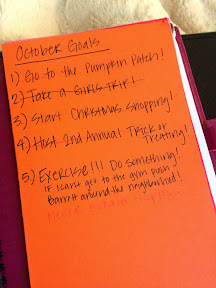 October Goals
1) Go to the Pumpkin Patch!
2) Take a Girls Trip!
3) Start Christmas Shopping!
4) Host 2nd Annual Trick or
Treating!
5) Exercise!!! Do something!
If I cant get to the gym push
Barrett around the neighborhood!